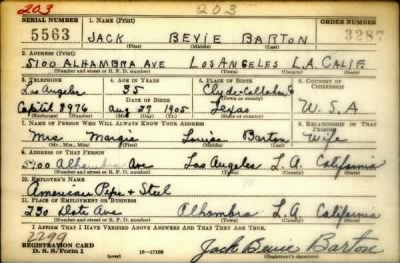 203 203
SERIAL NUMBER 1. NAME (Print) ORDER NUMBER
5563 JACK BEVIE BARTON 3287
(First) (Middle) (Last)
2. ADDRESS (Print)
5100 ALHAMBRA AVE LOS ANGELES L.A. CALIF
(Number and street or R. F. D. number) (Town) (County) (State)
3. TELEPHONE 4. AGE IN YEARS 5. PLACE OF BIRTH 6. COUNTRY OF CITIZENSHIP
Los Angeles 35 Clyde-Callahan
DATE OF BIRTH (Town or county)
Capitol 8976 Aug 27 1905 Texas U.S.A
(Exchange) (Number) (Mo.) (Day) (Yr.) (State or country)
7. NAME OF PERSON WHO WILL ALWAYS KNOW YOUR ADDRESS 8. RELATIONSHIP OF THAT PERSON
Mrs. Margie Louise Barton Wife
(Mr., Mrs., Miss) (First) (Middle) (Last)
9. ADDRESS OF THAT PERSON
5100 Alhambra Ave Los Angeles L.A. California
(Number and street or R. F. D. number) (Town) (County) (State)
10. EMPLOYER'S NAME
American Pipe & Steel
11. PLACE OF EMPLOYMENT OR BUSINESS
230 Date Ave Alhambra L.A. California
(Number and street or R. F. D. number) (Town) (County) (State)
I AFFIRM THAT I HAVE VERIFIED ABOVE ANSWERS AND THAT THEY ARE TRUE.
2299
REGISTRATION CARD
D. S. S. Form 1 (over) 16-17105 Jack Bevie Barton
(Registrant's signature)